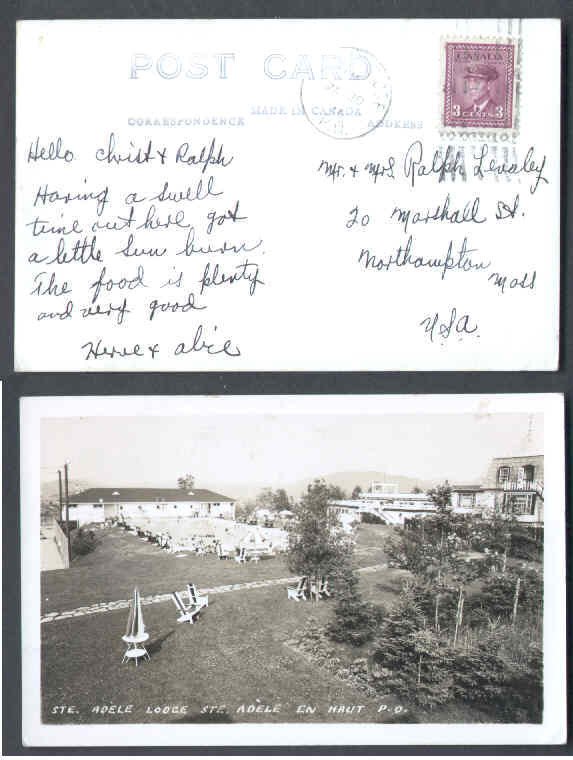 POST CARD
MADE IN CANADA
CORRESPONDENCE
ADDRESS
CANADA
3 CENTS 3
Hello Christ & Ralph
Having a swell
time out here got
a little sun burn.
The food is plenty
and very good
Herve & alice
Mr. & Mrs Ralph Levaley
20 Marshall St.
Northampton
Mass
U.S.A.
STE. ADELE LODGE STE. ADÈLE EN HAUT P.Q.